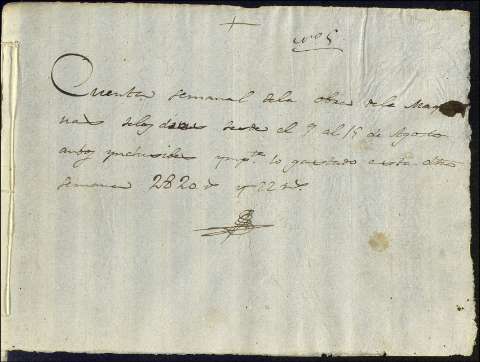 nº 5
Cuenta semanal de la obra de la Maq
desde el 9 al 15 de Agosto
ambos ynclusibe lo gastado en esta dha
semana 2820 r y 22 m.